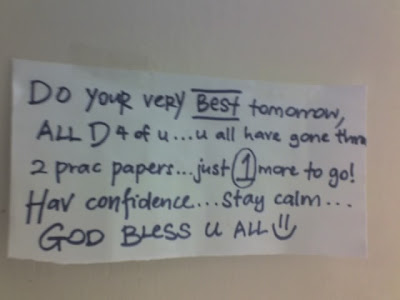 Do your very BEST tomorrow,
ALL D 4 of u...u all have gone thru
2 prac papers...just 1 more to go!
Hav confidence...stay calm...
GOD BLESS U ALL